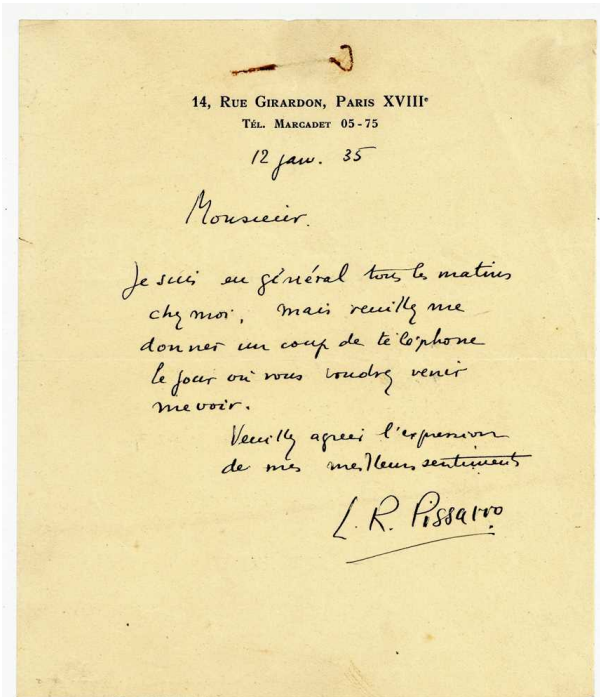 14, RUE GIRARDON, PARIS XVIIIe
TÉL. MARCADET 05-75
12 janv. 35
Monsieur.
Je suis en général tous les matins
chez moi, mais veuillez me
donner un coup de téléphone
le jour où vous voudrez venir
me voir.
Veuillez agréer l'expression
de mes meilleurs sentiments
L. R. Pissarro